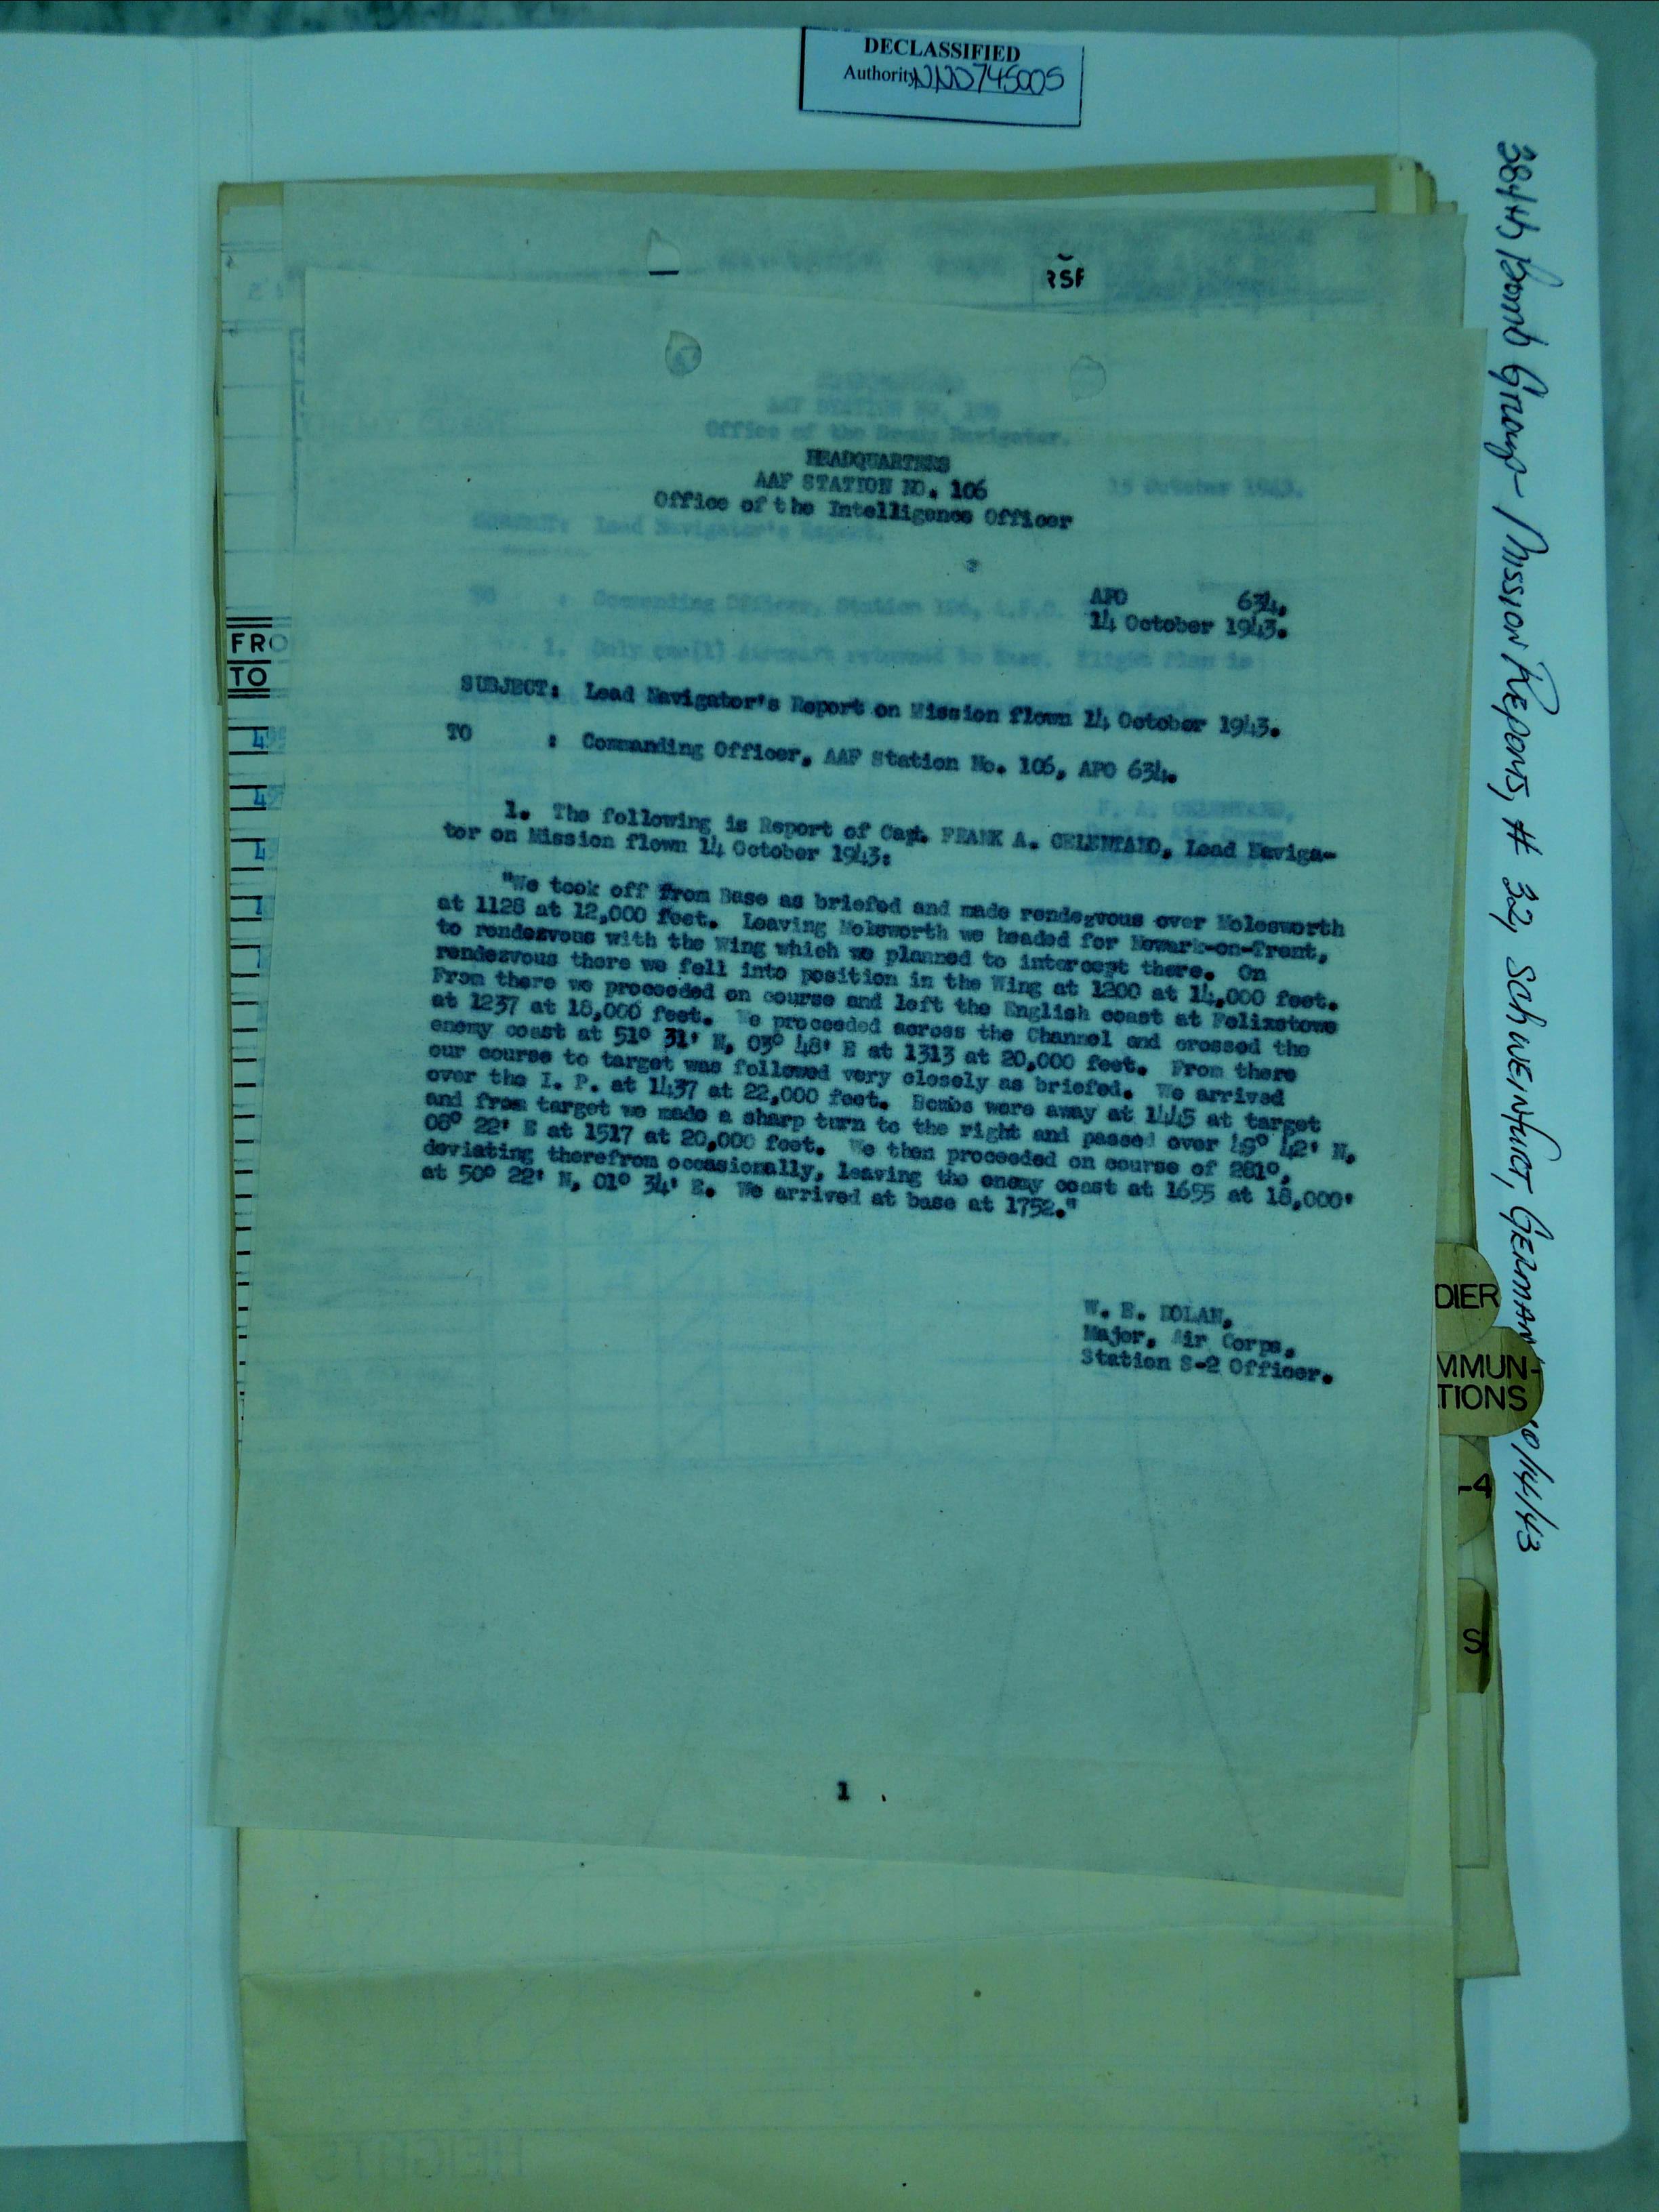 DECLASSIFIED
Authority NND745005
384th Bomb Group - Mission Reports, # 32, SCHWEINFURT, GERMAN 10/14/43
RSF
Office of the Group Navigator.
15 October 1943.
Lead Navigator's Report.
HEADQUARTERS
AAF STATION NO. 106
Office of the Intelligence Officer
APO 634.
14 October 1943.
SUBJECT: Lead Navigator's Report on Mission flown 14 October 1943.
TO : Commanding Officer, AAF Station No. 106, APO 634.
1. The following is Report of Capt. FRANK A. CELENTANO, Lead Naviga-
tor on Mission flown 14 October 1943:
"We took off from Base as briefed and made rendezvous over Molesworth
at 1128 at 12,000 feet. Leaving Molsworth we headed for Newark-on-Trent,
to rendezvous with the Wing which we planned to intercept there. On
rendezvous there we fell into position in the Wing at 1200 at 14,000 feet.
From there we proceeded on course and left the English coast at Felixstowe
at 1237 at 18,000 feet. We proceeded across the Channel and crossed the
enemy coast at 51° 31' N, 03° 48' E at 1313 at 20,000 feet. From there
our course to target was followed very closely as briefed. We arrived
over the I. P. at 1437 at 22,000 feet. Bombs were away at 1445 at target
and from target we made a sharp turn to the right and passed over 49° 42' N,
08° 22' E at 1517 at 20,000 feet. We then proceeded on course of 281°,
deviating therefrom occasionally, leaving the enemy coast at 1655 at 18,000'
at 50° 22' N, 01° 34' E. We arrived at base at 1752."
W. E. DOLAN,
Major, Air Corps,
Station S-2 Officer.
1
FRO
TO
DIER
MMUN-
TIONS
-4
S
HEIGHTS